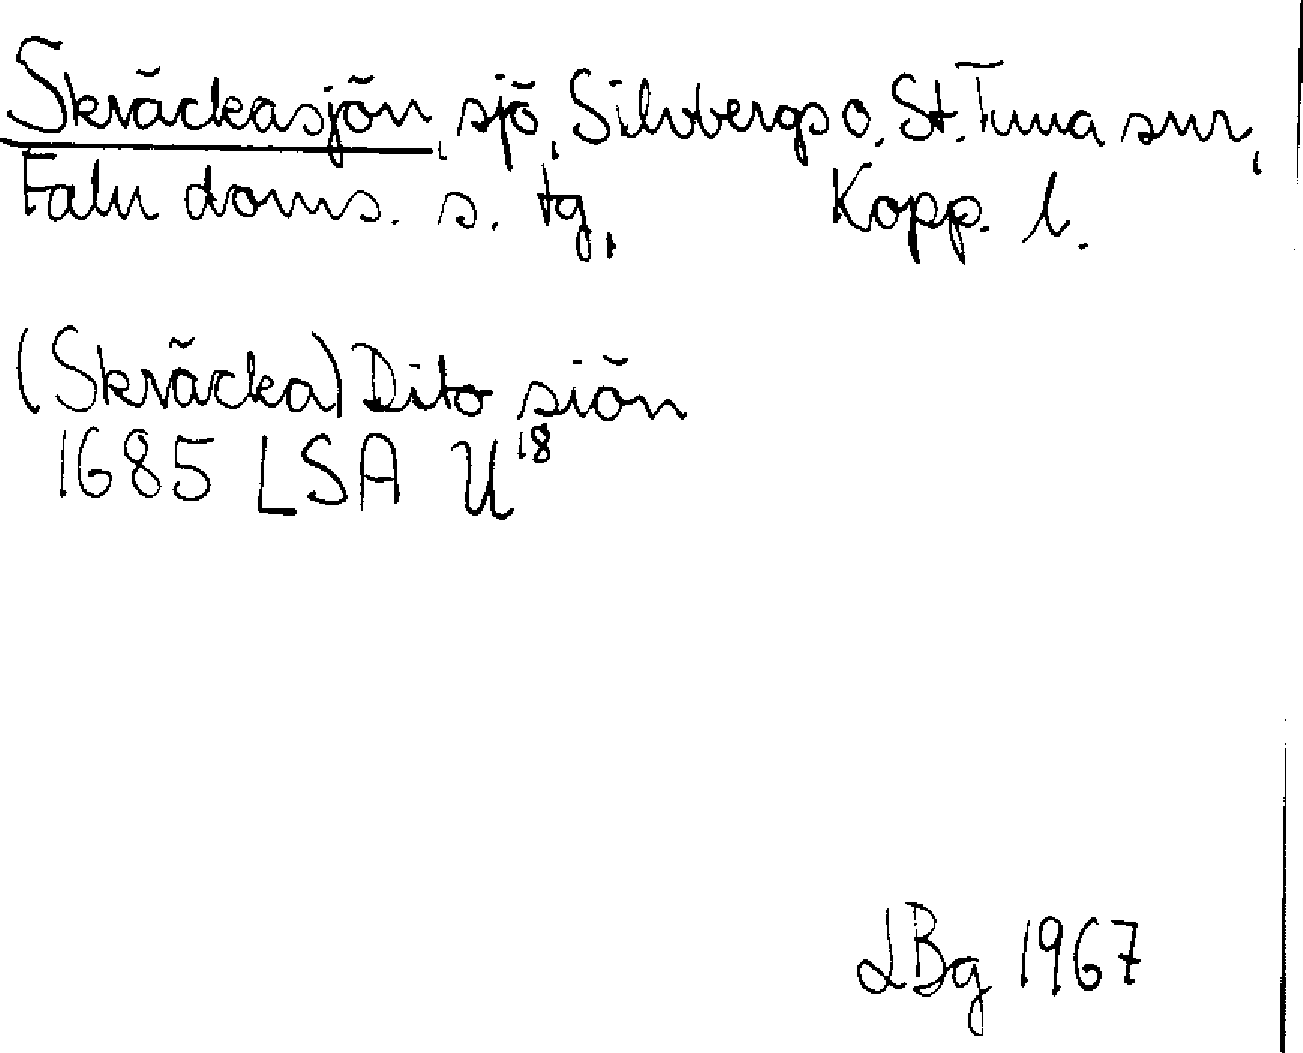 Skräckasjön, sjö, Silvbergs o. St. Tuna snr,
Falu doms. s. tg, Kopp. l.
(Skräcka) Dito siön
1685 LSA U18
LBg 1967